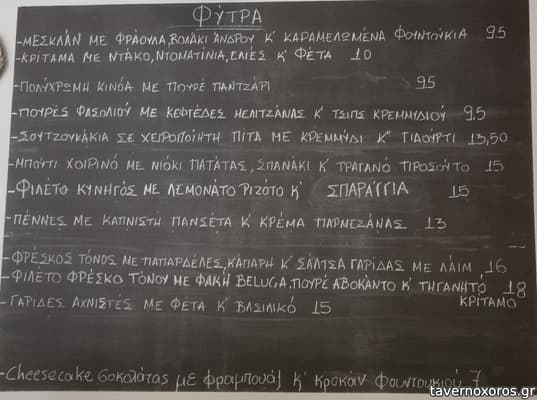 ΦΥΤΡΑ
-ΜΕΣΚΛΑΝ ΜΕ ΦΡΑΟΥΛΑ, ΒΟΛΑΚΙ ΑΝΔΡΟΥ Κ' ΚΑΡΑΜΕΛΩΜΕΝΑ ΦΟΥΝΤΟΥΚΙΑ 9.5
-ΚΡΙΤΑΜΑ ΜΕ ΝΤΑΚΟ, ΝΤΟΜΑΤΙΝΙΑ, ΕΛΙΕΣ Κ' ΦΕΤΑ 10
-ΠΟΛΥΧΡΩΜΗ ΚΙΝΟΑ ΜΕ ΠΟΥΡΕ ΠΑΝΤΖΑΡΙ 9.5
-ΠΟΥΡΕΣ ΦΑΣΟΛΙΟΥ ΜΕ ΚΕΦΤΕΔΕΣ ΜΕΛΙΤΖΑΝΑΣ Κ' ΤΣΙΠΣ ΚΡΕΜΜΥΔΙΟΥ 9.5
-ΣΟΥΤΖΟΥΚΑΚΙΑ ΣΕ ΧΕΙΡΟΠΟΙΗΤΗ ΠΙΤΑ ΜΕ ΚΡΕΜΜΥΔΙ Κ' ΓΙΑΟΥΡΤΙ 13,50
-ΜΠΟΥΤΙ ΧΟΙΡΙΝΟ ΜΕ ΝΙΟΚΙ ΠΑΤΑΤΑΣ, ΣΠΑΝΑΚΙ Κ' ΤΡΑΓΑΝΟ ΠΡΟΣΟΥΤΟ 15
-ΦΙΛΕΤΟ ΚΥΝΗΓΟΣ ΜΕ ΛΕΜΟΝΑΤΟ ΡΙΖΟΤΟ Κ' ΣΠΑΡΑΓΓΙΑ 15
-ΠΕΝΝΕΣ ΜΕ ΚΑΠΝΙΣΤΗ ΠΑΝΣΕΤΑ Κ' ΚΡΕΜΑ ΠΑΡΜΕΖΑΝΑΣ 13
-ΦΡΕΣΚΟΣ ΤΟΝΟΣ ΜΕ ΠΑΠΑΡΔΕΛΕΣ, ΚΑΠΑΡΗ Κ' ΣΑΛΤΣΑ ΓΑΡΙΔΑΣ ΜΕ ΛΑΙΜ 16
-ΦΙΛΕΤΟ ΦΡΕΣΚΟ ΤΟΝΟΥ ΜΕ ΦΑΚΗ BELUGA, ΠΟΥΡΕ ΑΒΟΚΑΝΤΟ Κ' ΤΗΓΑΝΗΤΟ 18
ΚΡΙΤΑΜΟ
-ΓΑΡΙΔΕΣ ΑΧΝΙΣΤΕΣ ΜΕ ΦΕΤΑ Κ' ΒΑΣΙΛΙΚΟ 15
-Cheesecake σοκολάτας με φραμπουάζ κ' κροκάν φουντουκιού 7
tavernoxoros.gr